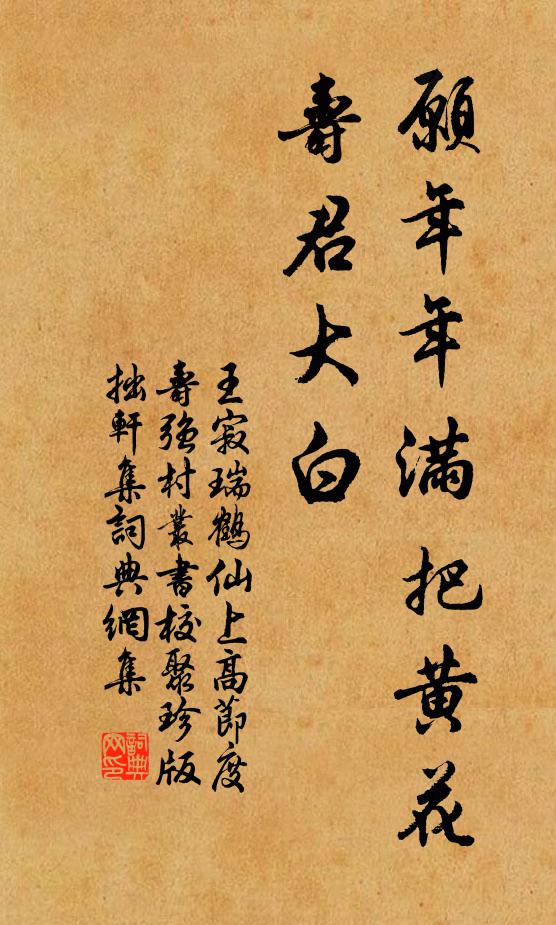 願年年滿把黄花
壽君大白
王寂瑞鶴仙上高節度
壽強村叢書校聚珍版
拙軒集詞典網集
詞典
网印